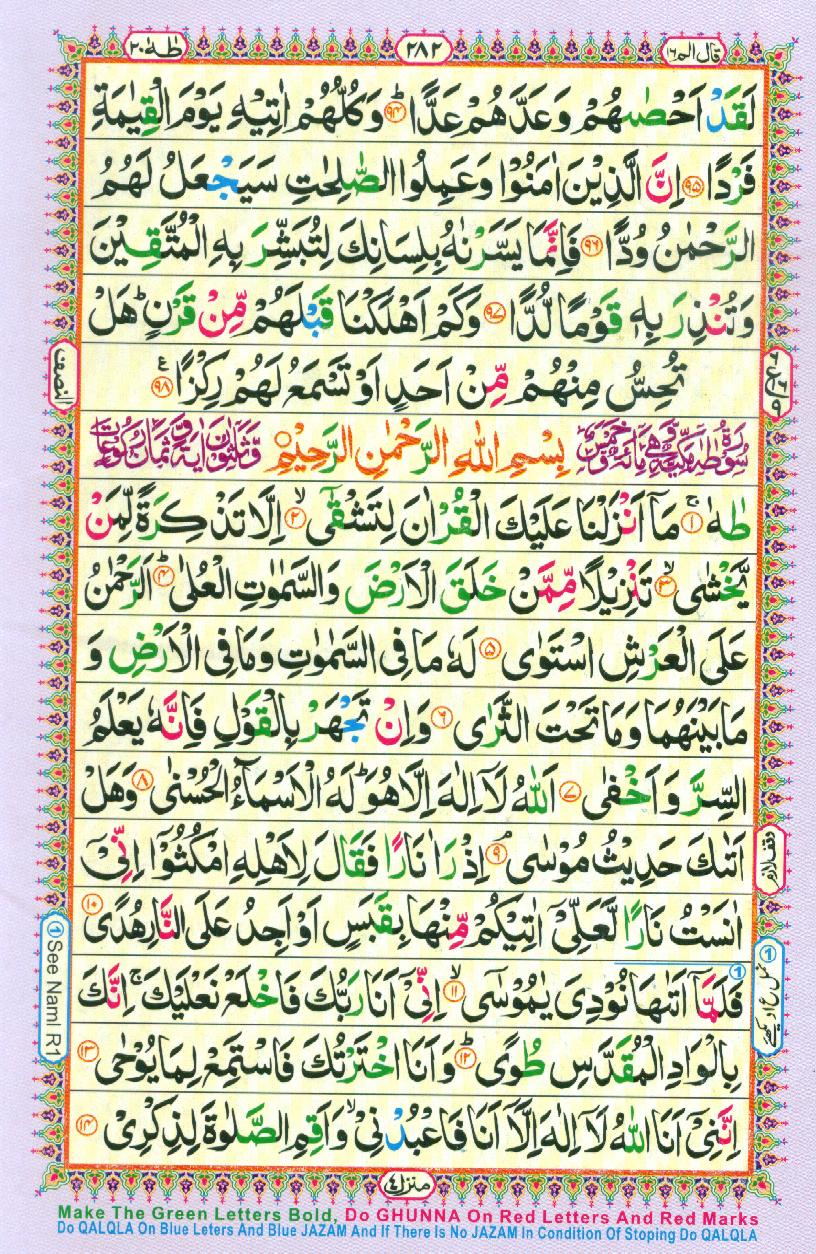 قال الم ١٦
٢٨٢
طٰهٰ ٢٠
لَقَدْ اَحْصٰىهُمْ وَعَدَّهُمْ عَدًّا ؕ ﴿۹۴﴾ وَكُلُّهُمْ اٰتِيْهِ يَوْمَ الْقِيٰمَةِ
فَرْدًا ﴿۹۵﴾ اِنَّ الَّذِيْنَ اٰمَنُوْا وَعَمِلُوا الصّٰلِحٰتِ سَيَجْعَلُ لَهُمُ
الرَّحْمٰنُ وُدًّا ﴿۹۶﴾ فَاِنَّمَا يَسَّرْنٰهُ بِلِسَانِكَ لِتُبَشِّرَ بِهِ الْمُتَّقِيْنَ
وَتُنْذِرَ بِهٖ قَوْمًا لُّدًّا ﴿۹۷﴾ وَكَمْ اَهْلَكْنَا قَبْلَهُمْ مِّنْ قَرْنٍ ؕ هَلْ
تُحِسُّ مِنْهُمْ مِّنْ اَحَدٍ اَوْ تَسْمَعُ لَهُمْ رِكْزًا ﴿۹۸﴾
النصف
سُوْرَةُ طٰهٰ مَكِّيَّةٌ وَّهِيَ مِائَةٌ وَّخَمْسٌ بِسْمِ اللهِ الرَّحْمٰنِ الرَّحِيْمِ وَّثَلٰثُوْنَ اٰيَةً وَّثَمَانُ رُكُوْعَاتٍ
طٰهٰ ۚ ﴿۱﴾ مَاۤ اَنْزَلْنَا عَلَيْكَ الْقُرْاٰنَ لِتَشْقٰۤى ۙ ﴿۲﴾ اِلَّا تَذْكِرَةً لِّمَنْ
يَّخْشٰى ۙ ﴿۳﴾ تَنْزِيْلًا مِّمَّنْ خَلَقَ الْاَرْضَ وَالسَّمٰوٰتِ الْعُلٰى ؕ ﴿۴﴾ اَلرَّحْمٰنُ
عَلَى الْعَرْشِ اسْتَوٰى ﴿۵﴾ لَهٗ مَا فِى السَّمٰوٰتِ وَمَا فِى الْاَرْضِ وَ
مَا بَيْنَهُمَا وَمَا تَحْتَ الثَّرٰى ﴿۶﴾ وَاِنْ تَجْهَرْ بِالْقَوْلِ فَاِنَّهٗ يَعْلَمُ
السِّرَّ وَاَخْفٰى ﴿۷﴾ اَللهُ لَاۤ اِلٰهَ اِلَّا هُوَ ؕ لَهُ الْاَسْمَآءُ الْحُسْنٰى ﴿۸﴾ وَهَلْ
اَتٰىكَ حَدِيْثُ مُوْسٰى ۘ ﴿۹﴾ اِذْ رَاٰ نَارًا فَقَالَ لِاَهْلِهِ امْكُثُوْۤا اِنِّىْۤ
وقف لازم
اٰنَسْتُ نَارًا لَّعَلِّىْۤ اٰتِيْكُمْ مِّنْهَا بِقَبَسٍ اَوْ اَجِدُ عَلَى النَّارِ هُدًى ﴿۱۰﴾
فَلَمَّاۤ اَتٰىهَا نُوْدِىَ يٰمُوْسٰى ؕ ﴿۱۱﴾ اِنِّىْۤ اَنَا رَبُّكَ فَاخْلَعْ نَعْلَيْكَ ۚ اِنَّكَ
① نمل ع ا دیکھیے
① See Naml R1
بِالْوَادِ الْمُقَدَّسِ طُوًى ؕ ﴿۱۲﴾ وَاَنَا اخْتَرْتُكَ فَاسْتَمِعْ لِمَا يُوْحٰى ﴿۱۳﴾
اِنَّنِىْۤ اَنَا اللهُ لَاۤ اِلٰهَ اِلَّاۤ اَنَا فَاعْبُدْنِىْ ۙ وَاَقِمِ الصَّلٰوةَ لِذِكْرِىْ ﴿۱۴﴾
منزل ٤
Make The Green Letters Bold, Do GHUNNA On Red Letters And Red Marks
Do QALQLA On Blue Leters And Blue JAZAM And If There Is No JAZAM In Condition Of Stoping Do QALQLA